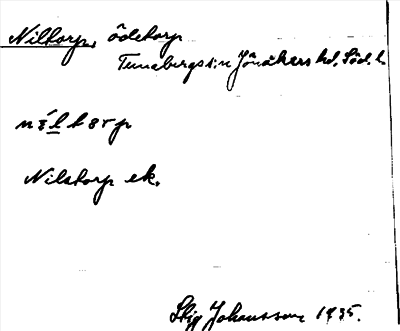 Niltorp, ödetorp
Tunabergs s:n Jönåkers hd. Söd. l.
Nilstorp ek.
Stig Johansson 1935.